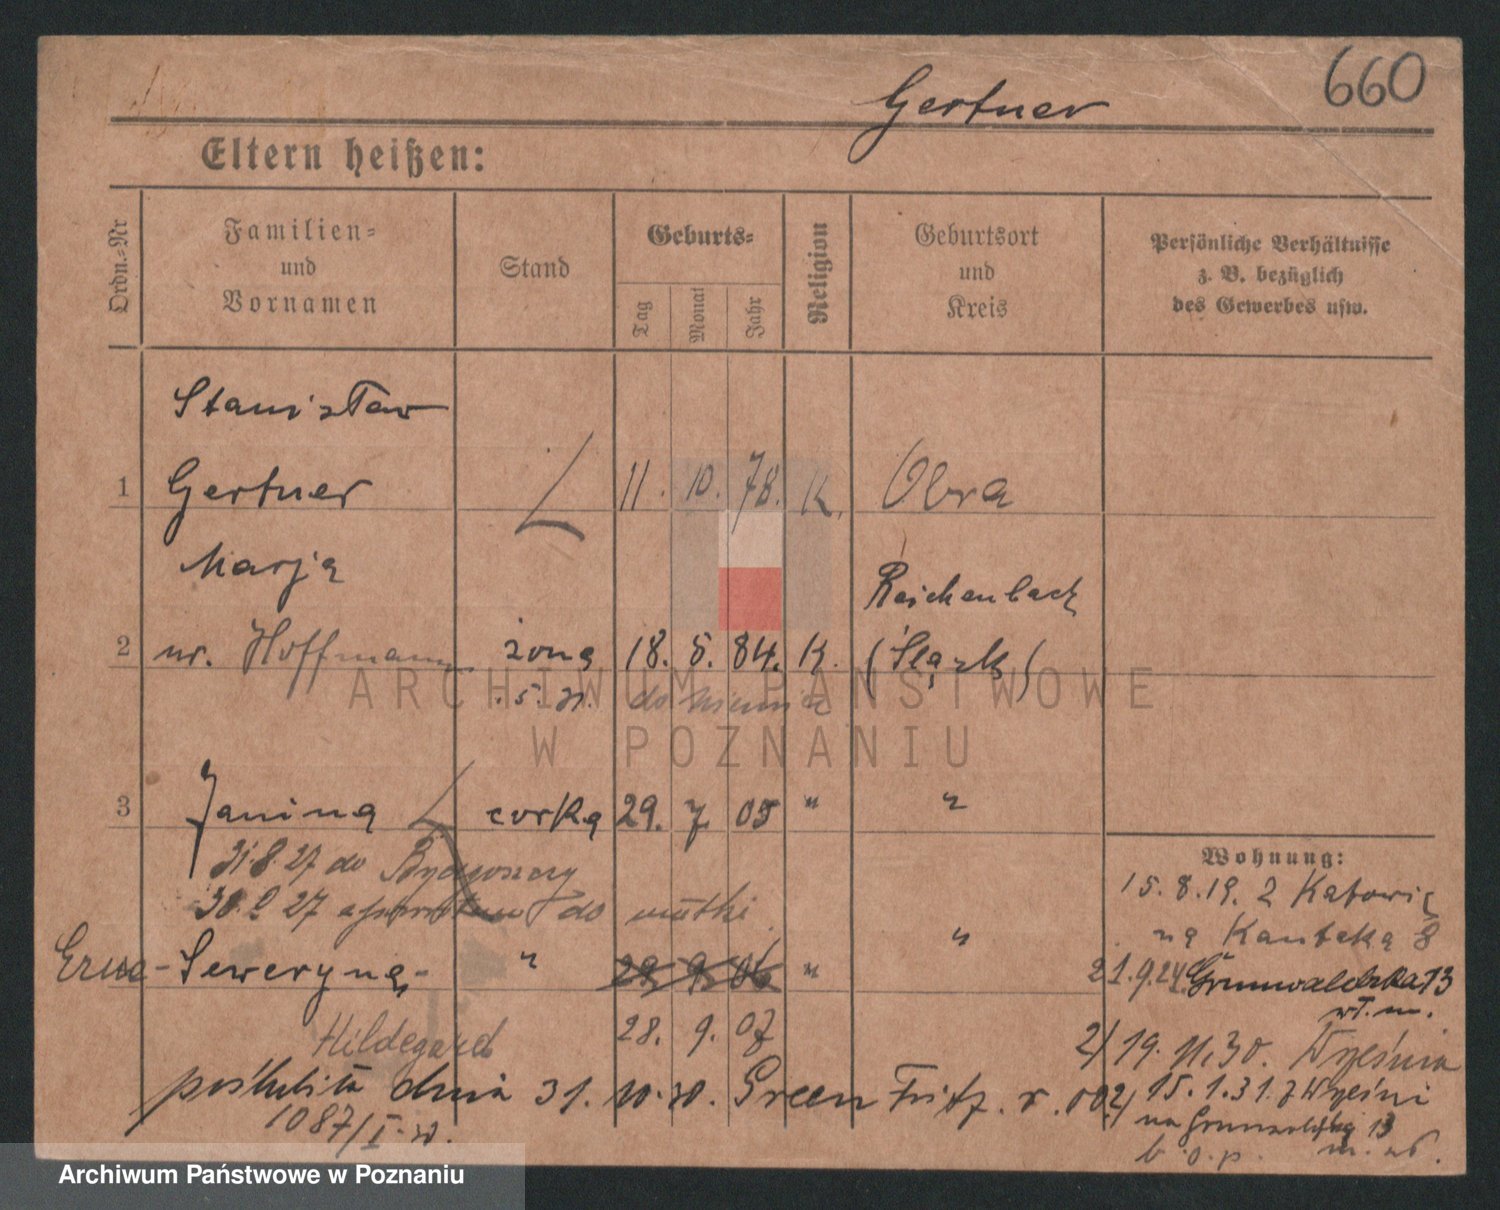 660
Gertner
Eltern heißen:
Ordn.-Nr
Familien-
und
Vornamen
Stand
Geburts-
Tag
Monat
Jahr
Religion
Geburtsort
und
Kreis
Persönliche Verhältnisse
z. B. bezüglich
des Gewerbes usw.
Stanisław
1 Gertner 11. 10. 78. K. Obra
Marja Reichenbach
2 ur. Hoffmann żona 18. 5. 84. K. (Śląsk)
do
ARCHIWUM PAŃSTWOWE
W POZNANIU
3 Janina corka 29. 7 05 " "
31.8 27 do Bydgoszczy
27 do matki
Seweryna " 29 9 06 " "
Hildegard 28. 9. 07
poślubiła dnia 31. 10. 30. Green Fritz. r. 002/
1087/I-30.
Wohnung:
15. 8. 19. z Katowic
na Kanteka 8
21.9.24. Grunwaldzka 13
wł. m.
2/ 19. 11. 30. Września
15. 1. 31. z Wrześni
na Grunwaldzką 13
b. o. p.
Archiwum Państwowe w Poznaniu